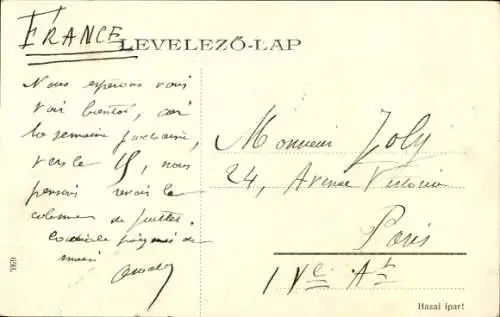 FRANCE
LEVELEZŐ-LAP
Nous espérons vous
voir bientôt, car
la semaine prochaine,
vers le 15, nous
pensons revoir la
colonne de juillet.
Cordiale poignée de
main
Monsieur Joly
24, Avenue Victoria
Paris
IVe Ar
690.
Hazai ipar!